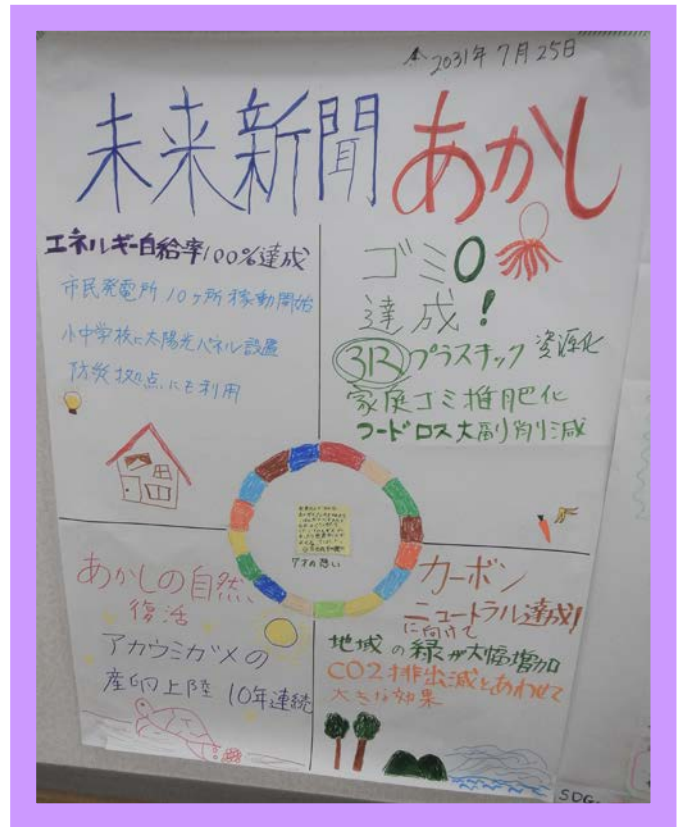 2031年7月25日
未来新聞 あかし
エネルギー自給率100%達成
市民発電所 10ヶ所 稼動開始
小中学校に太陽光パネル設置
防災拠点にも利用
ゴミ0
達成!
3R プラスチック 資源化
家庭ゴミ堆肥化
フードロス大副削減
7才の想い
あかしの自然
復活
アカウミガメの
産卵上陸 10年連続
カーボン
ニュートラル達成!
に向けて
地域の緑が大幅増加
CO2排出減とあわせて
大きな効果
SDG